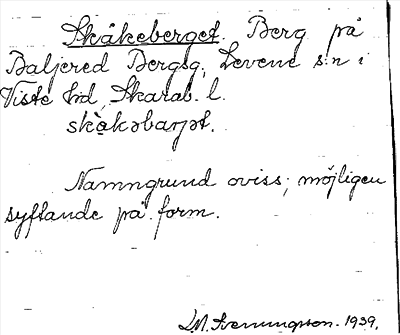 Skåkeberget. Berg på
Baljered Bergsg., Levene s:n i
Viste hd, Skarab. l.
skåkəbarjət.
Namngrund oviss; möjligen
syftande på form.
I.M. Svenungsson. 1939.